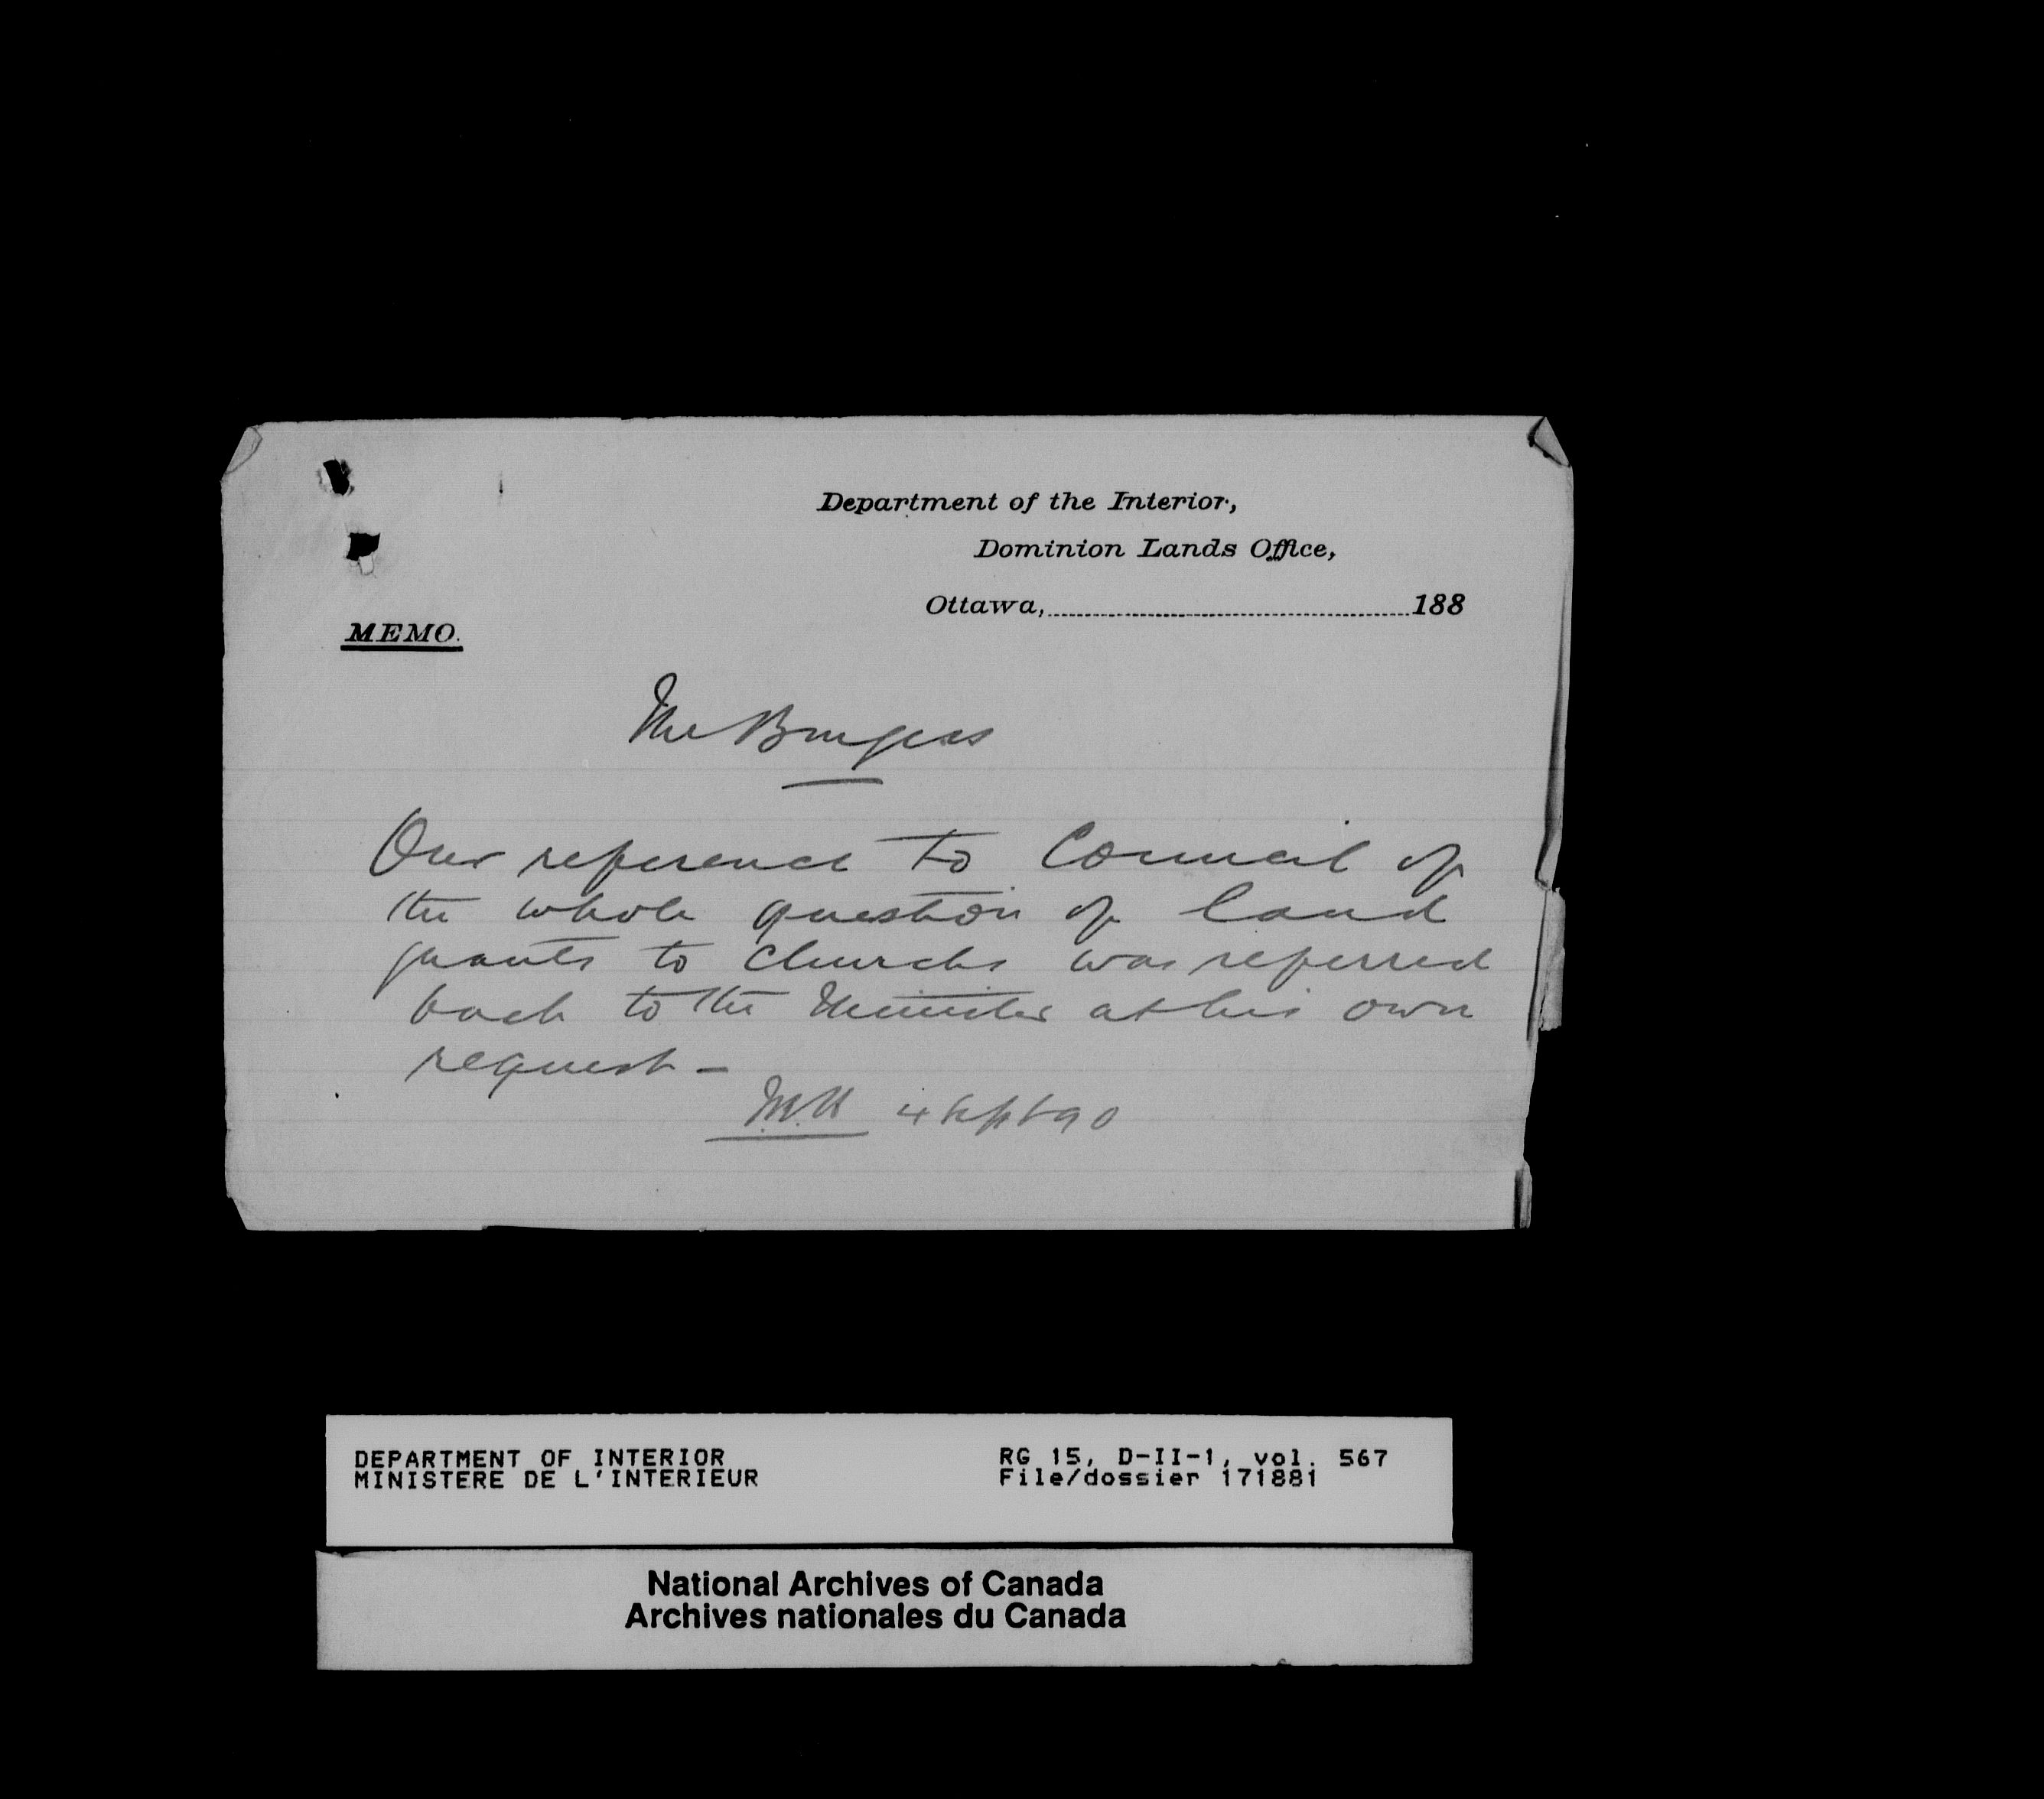 Department of the Interior,
Dominion Lands Office,
Ottawa, 188
MEMO.
Mr Burgess
Our reference to Council of
the whole question of land
grants to churches was referred
back to the Minister at his own
request —
4 Sept 90
DEPARTMENT OF INTERIOR
MINISTERE DE L'INTERIEUR
RG 15, D-II-1, vol. 567
File/dossier 171881
National Archives of Canada
Archives nationales du Canada